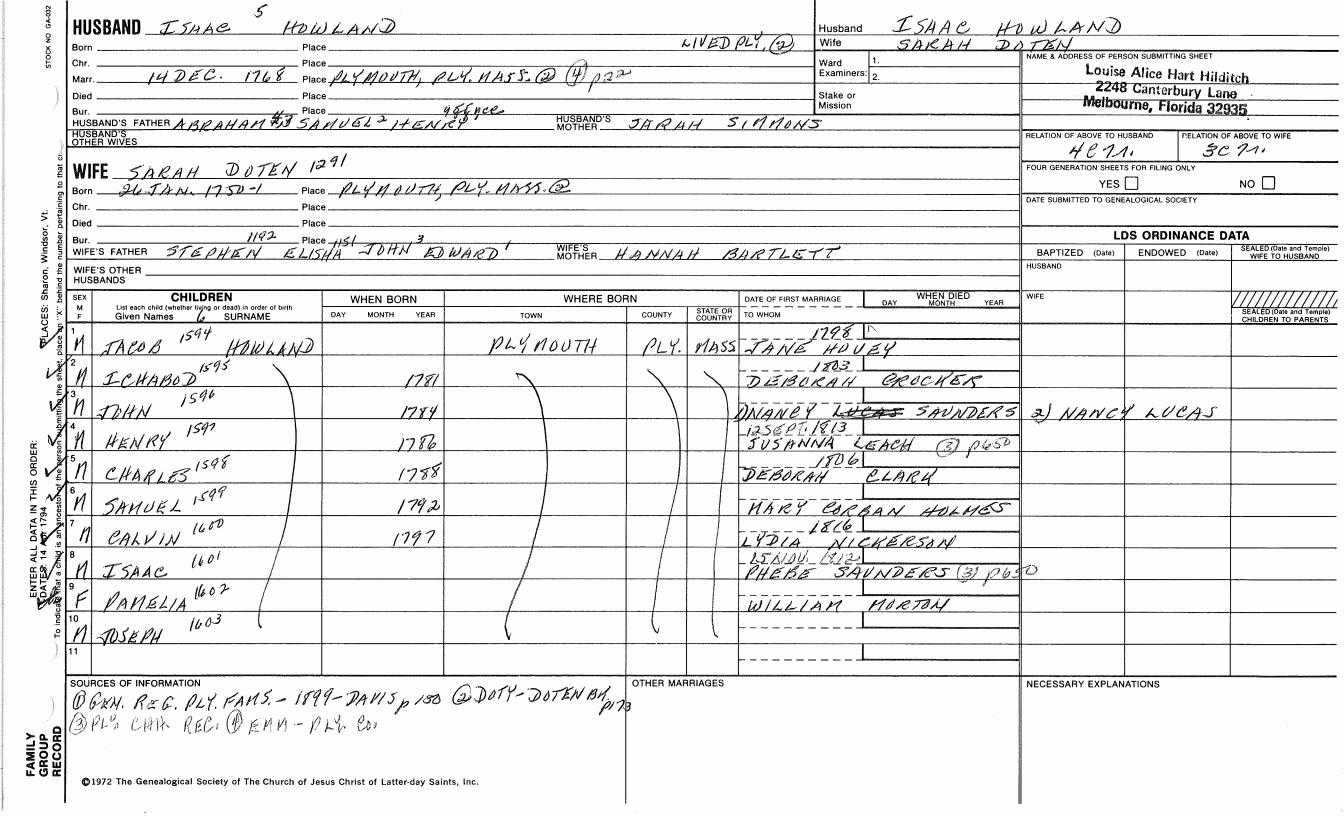 5
HUSBAND ISAAC HOWLAND
LIVED PLY. ②
Born Place
Chr. Place
Marr. 14 DEC. 1768 Place PLYMOUTH, PLY. MASS. ② ④ p22
Died Place
Bur. Place
HUSBAND'S FATHER ABRAHAM SAMUEL 2 HENRY 1 HUSBAND'S MOTHER SARAH SIMMONS
HUSBAND'S OTHER WIVES
WIFE SARAH DOTEN 1291
Born 26 JAN. 1750-1 Place PLYMOUTH, PLY. MASS. ②
Chr. Place
Died Place
Bur. Place
1192 1151 3 1
WIFE'S FATHER STEPHEN ELISHA JOHN EDWARD WIFE'S MOTHER HANNAH BARTLETT
WIFE'S OTHER HUSBANDS
Husband ISAAC HOWLAND
Wife SARAH DOTEN
Ward Examiners: 1.
2.
Stake or Mission
NAME & ADDRESS OF PERSON SUBMITTING SHEET
Louise Alice Hart Hilditch
2248 Canterbury Lane
Melbourne, Florida 32935
RELATION OF ABOVE TO HUSBAND RELATION OF ABOVE TO WIFE
4C7r. 3C7r.
FOUR GENERATION SHEETS FOR FILING ONLY
YES NO
DATE SUBMITTED TO GENEALOGICAL SOCIETY
LDS ORDINANCE DATA
BAPTIZED (Date) ENDOWED (Date) SEALED (Date and Temple) WIFE TO HUSBAND
HUSBAND
WIFE
SEALED (Date and Temple) CHILDREN TO PARENTS
SEX M F CHILDREN WHEN BORN WHERE BORN DATE OF FIRST MARRIAGE WHEN DIED
List each child (whether living or dead) in order of birth
Given Names 6 SURNAME DAY MONTH YEAR TOWN COUNTY STATE OR COUNTRY TO WHOM DAY MONTH YEAR
1 M JACOB 1594 HOWLAND PLYMOUTH PLY. MASS 1798 JANE HOVEY
2 M ICHABOD 1595 1781 1803 DEBORAH CROCKER
3 M JOHN 1596 1784 1) NANCY LUCAS SAUNDERS 2) NANCY LUCAS
4 M HENRY 1597 1786 12 SEPT. 1813 SUSANNA LEACH ③ p650
5 M CHARLES 1598 1788 1806 DEBORAH CLARK
6 M SAMUEL 1599 1792 MARY CORBAN HOLMES
7 M CALVIN 1600 1797 1816 LYDIA NICKERSON
8 M ISAAC 1601 15 NOV. 1812 PHEBE SAUNDERS ③ p650
9 F PAMELIA 1602 WILLIAM MORTON
10 M JOSEPH 1603
11
SOURCES OF INFORMATION
① GEN. REG. PLY. FAMS. - 1899 - DAVIS p 150 ② DOTY-DOTEN BK, p173
③ PLY. CHH. REC. ④ EMM - PLY. CO.
OTHER MARRIAGES
NECESSARY EXPLANATIONS
©1972 The Genealogical Society of The Church of Jesus Christ of Latter-day Saints, Inc.
STOCK NO GA-032
PLACES: Sharon, Windsor, Vt.
ENTER ALL DATA IN THIS ORDER:
DATES: 14 Apr 1794
To indicate that a child is an ancestor of the person submitting the sheet, place an "X" behind the number pertaining to that
FAMILY
GROUP
RECORD